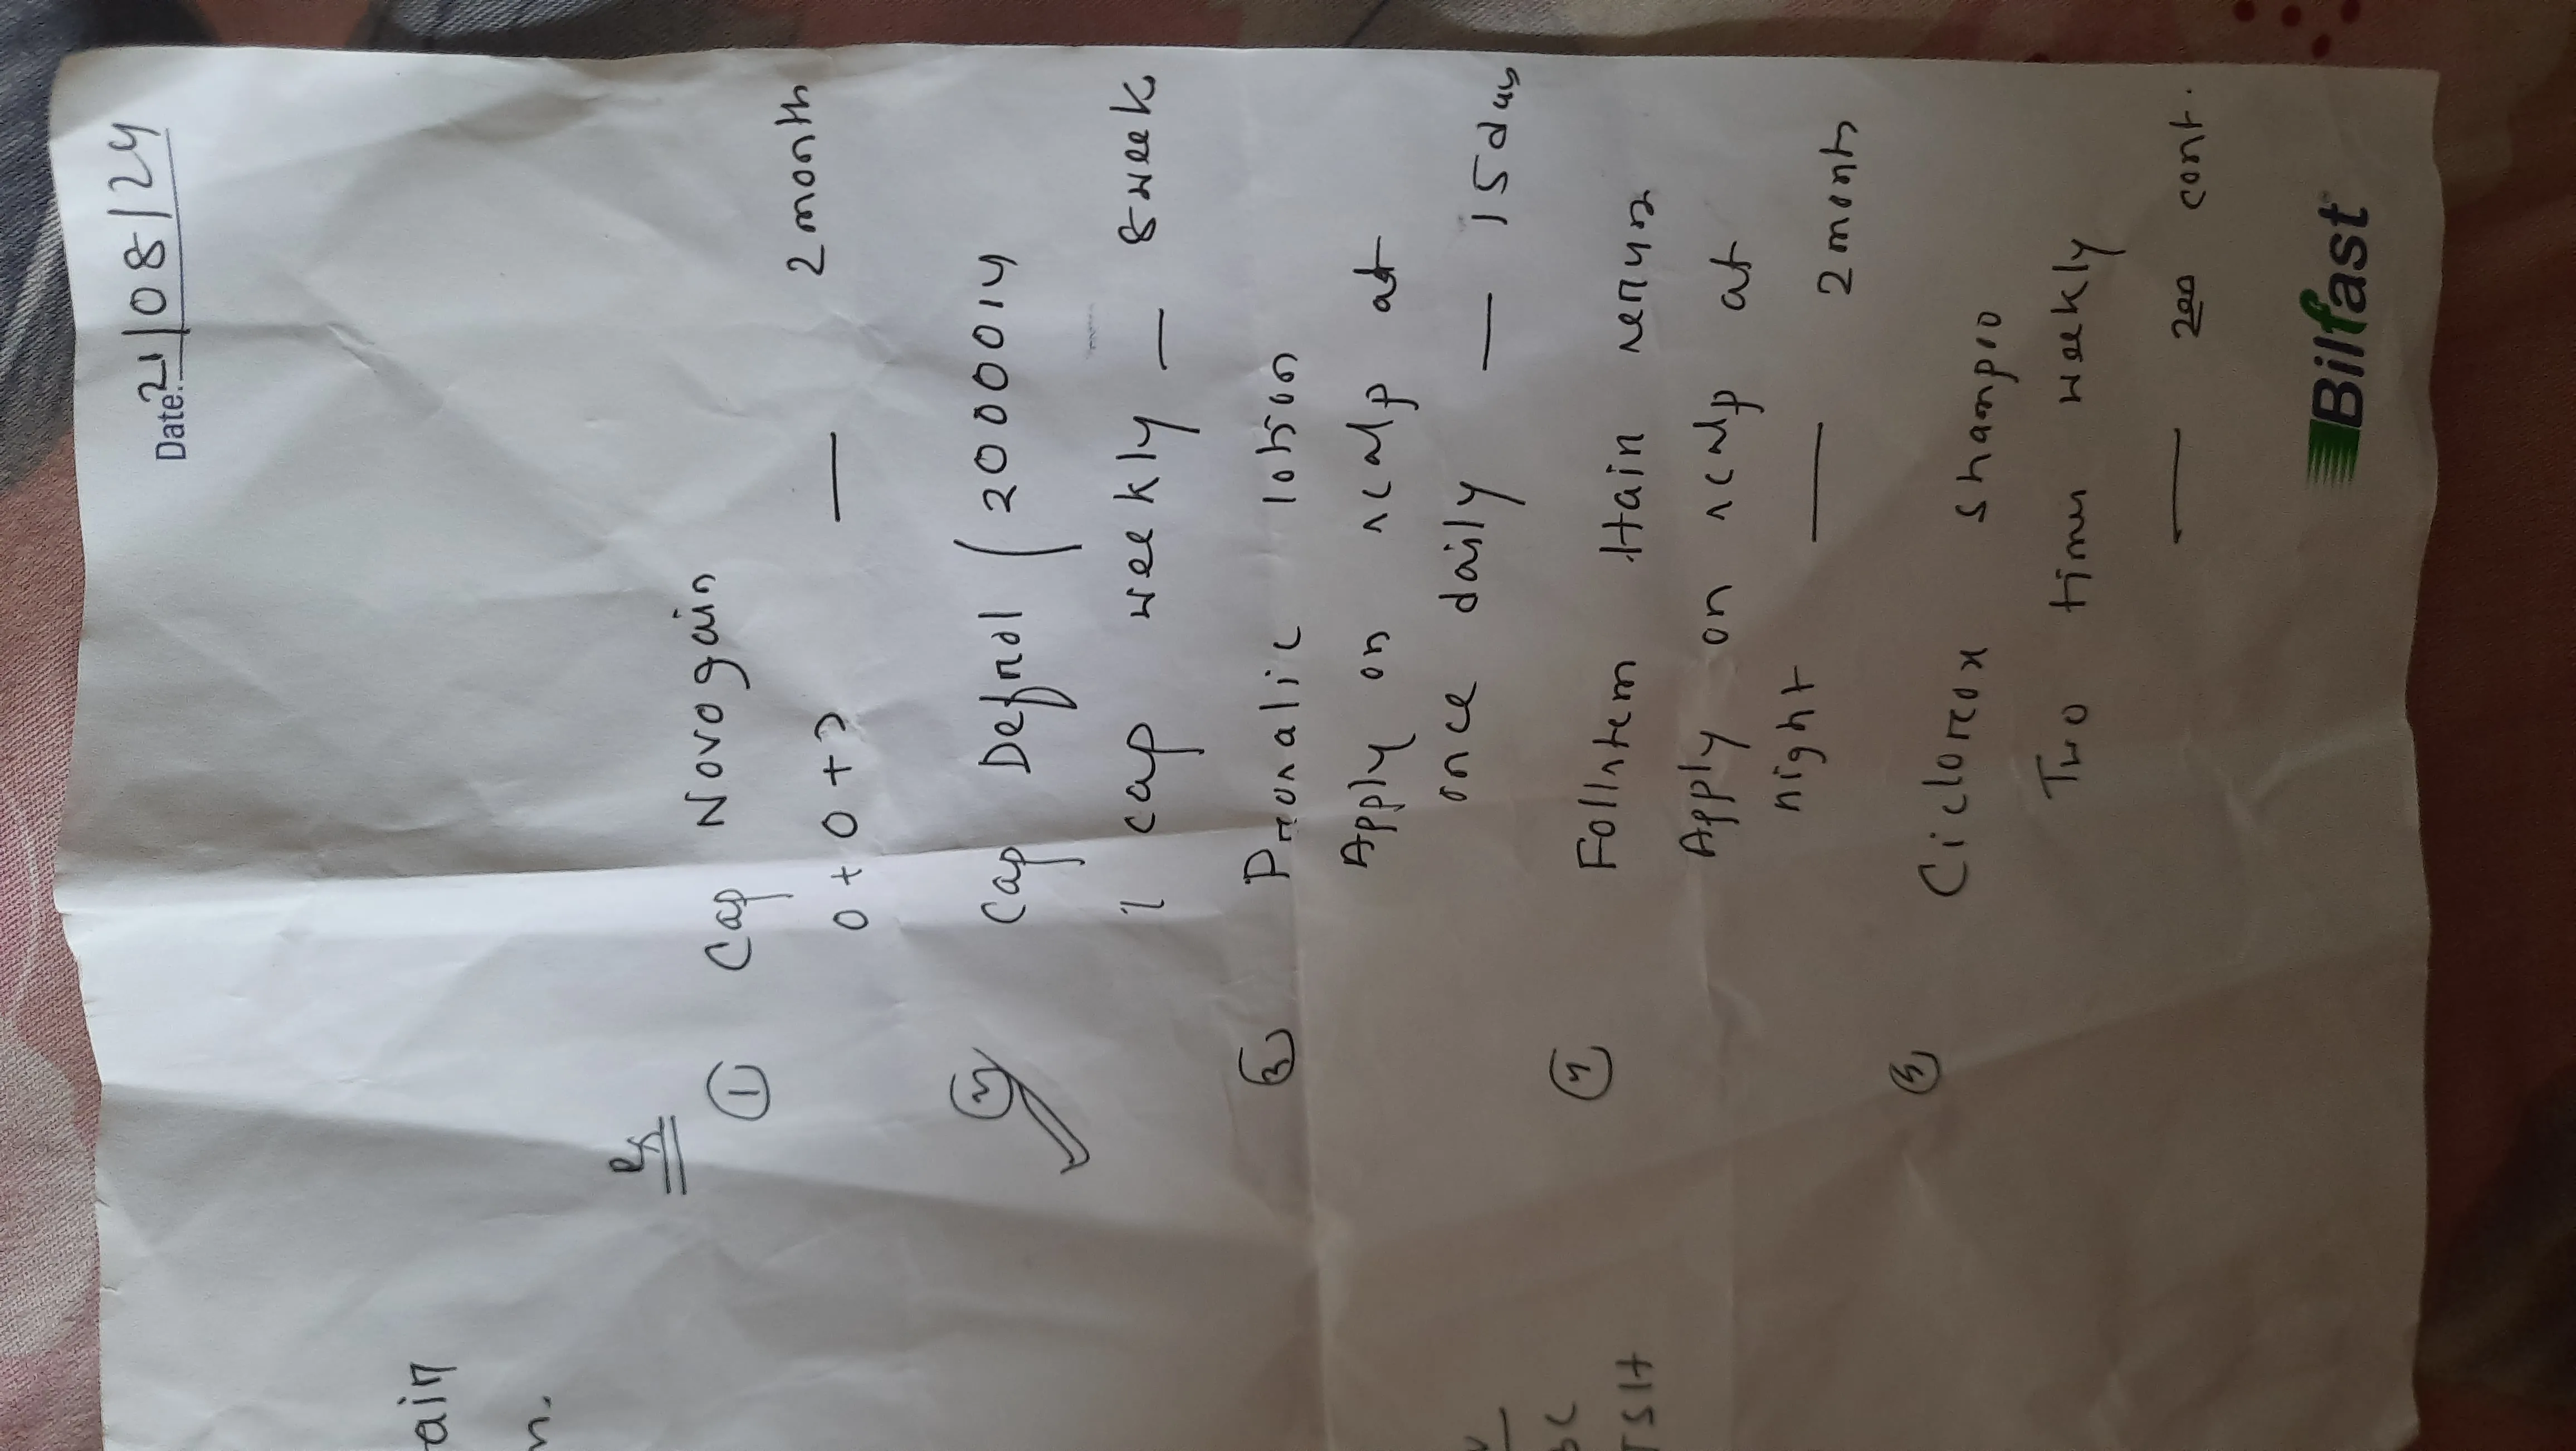 Date: 21/08/24
ain
n.
Rx
① Cap Novogain
0+0+1 — 2 month
② Cap Defrol (20000 IU
1 cap weekly — 8 week
③ Prosalic lotion
Apply on scalp at
once daily — 15 days
④ Follstem Hair serum
Apply on scalp at
night — 2 month
⑤ Ciclorox shampoo
Two times weekly
— cont.
BC
TSH
Bilfast